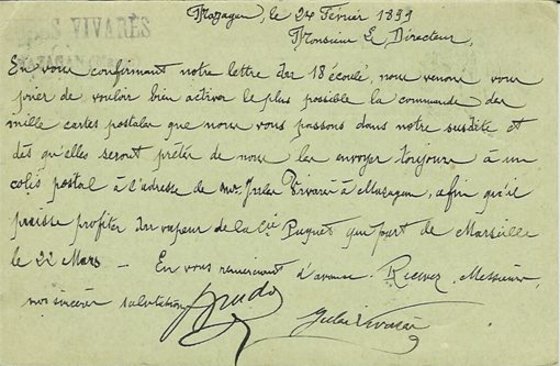 Mazagan, le 24 Février 1899
JULES VIVARÈS
MAZAGAN
Monsieur Le Directeur,
En vous confirmant notre lettre des 18 écoulé, nous venons vous
prier de vouloir bien activer le plus possible la commande des
mille cartes postales que nous vous passons dans notre susdite et
dès qu'elles seront prêtes de nous les envoyer toujours à un
colis postal à l'adresse de Mr. Jules Vivarès à Mazagan, afin qu'il
puisse profiter du vapeur de la Cie Paquet qui part de Marseille
le 22 Mars — En vous remerciant d'avance. Recevez, Messieurs,
nos sincères salutations
Jules Vivarès